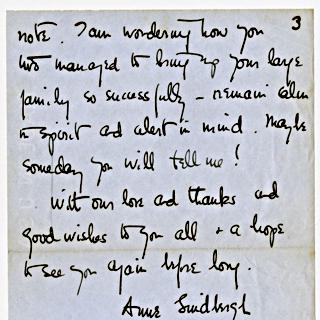 3
note. I am wondering how you
two managed to bring up your large
family so successfully – remain calm
in spirit and alert in mind. Maybe
someday you will tell me!
With our love and thanks and
good wishes to you all + a hope
to see you again before long.
Anne Lindbergh